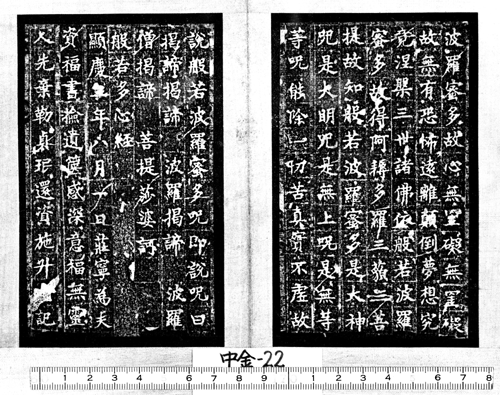 波羅蜜多故心無罣礙無罣礙
故無有恐怖遠離顛倒夢想究
竟涅槃三世諸佛依般若波羅
蜜多故得阿耨多羅三藐三菩
提故知般若波羅蜜多是大神
呪是大明呪是無上呪是無等
等呪能除一切苦真實不虛故
說般若波羅蜜多呪即說呪曰
揭諦揭諦 波羅揭諦 波羅
僧揭諦 菩提莎婆訶
般若多心經
顯慶年六月一日莊寧為夫
資福書撿遺篋感深意福無靈
人先棄勒真珉還資施升記
中金-22
1 2 3 4 6 7 8 9 1 2 3 4 6 7 8